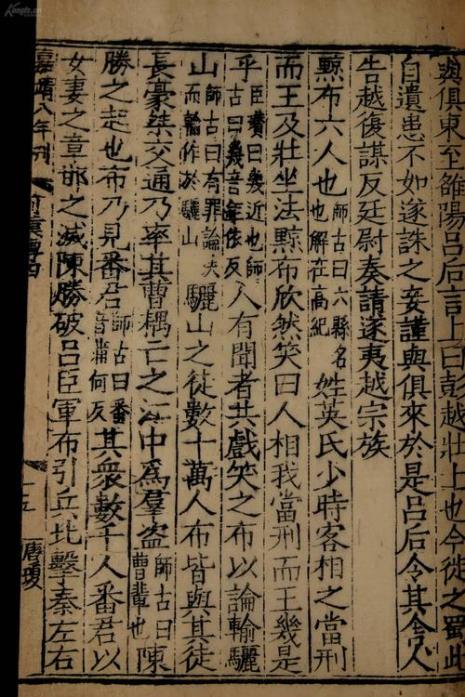 與俱東至雒陽呂后言上曰彭越壯士也今徙之蜀此
自遺患不如遂誅之妾謹與俱來於是呂后令其舍人
告越復謀反廷尉奏請遂夷越宗族
黥布六人也師古曰六縣名也解在高紀姓英氏少時客相之當刑
而王及壯坐法黥布欣然笑曰人相我當刑而王幾是
乎臣瓚曰幾近也師古曰幾音依反人有聞者共戲笑之布以論輸驪
山師古曰有罪論決而輸作於驪山驪山之徒數十萬人布皆與其徒
長豪桀交通乃率其曹耦亡之江中爲羣盜師古曰曹輩也陳
勝之起也布乃見番君師古曰番音蒲何反其衆數千人番君以
女妻之章邯之滅陳勝破呂臣軍布引兵北擊秦左右
嘉靖八年刊 前漢傳四 十五